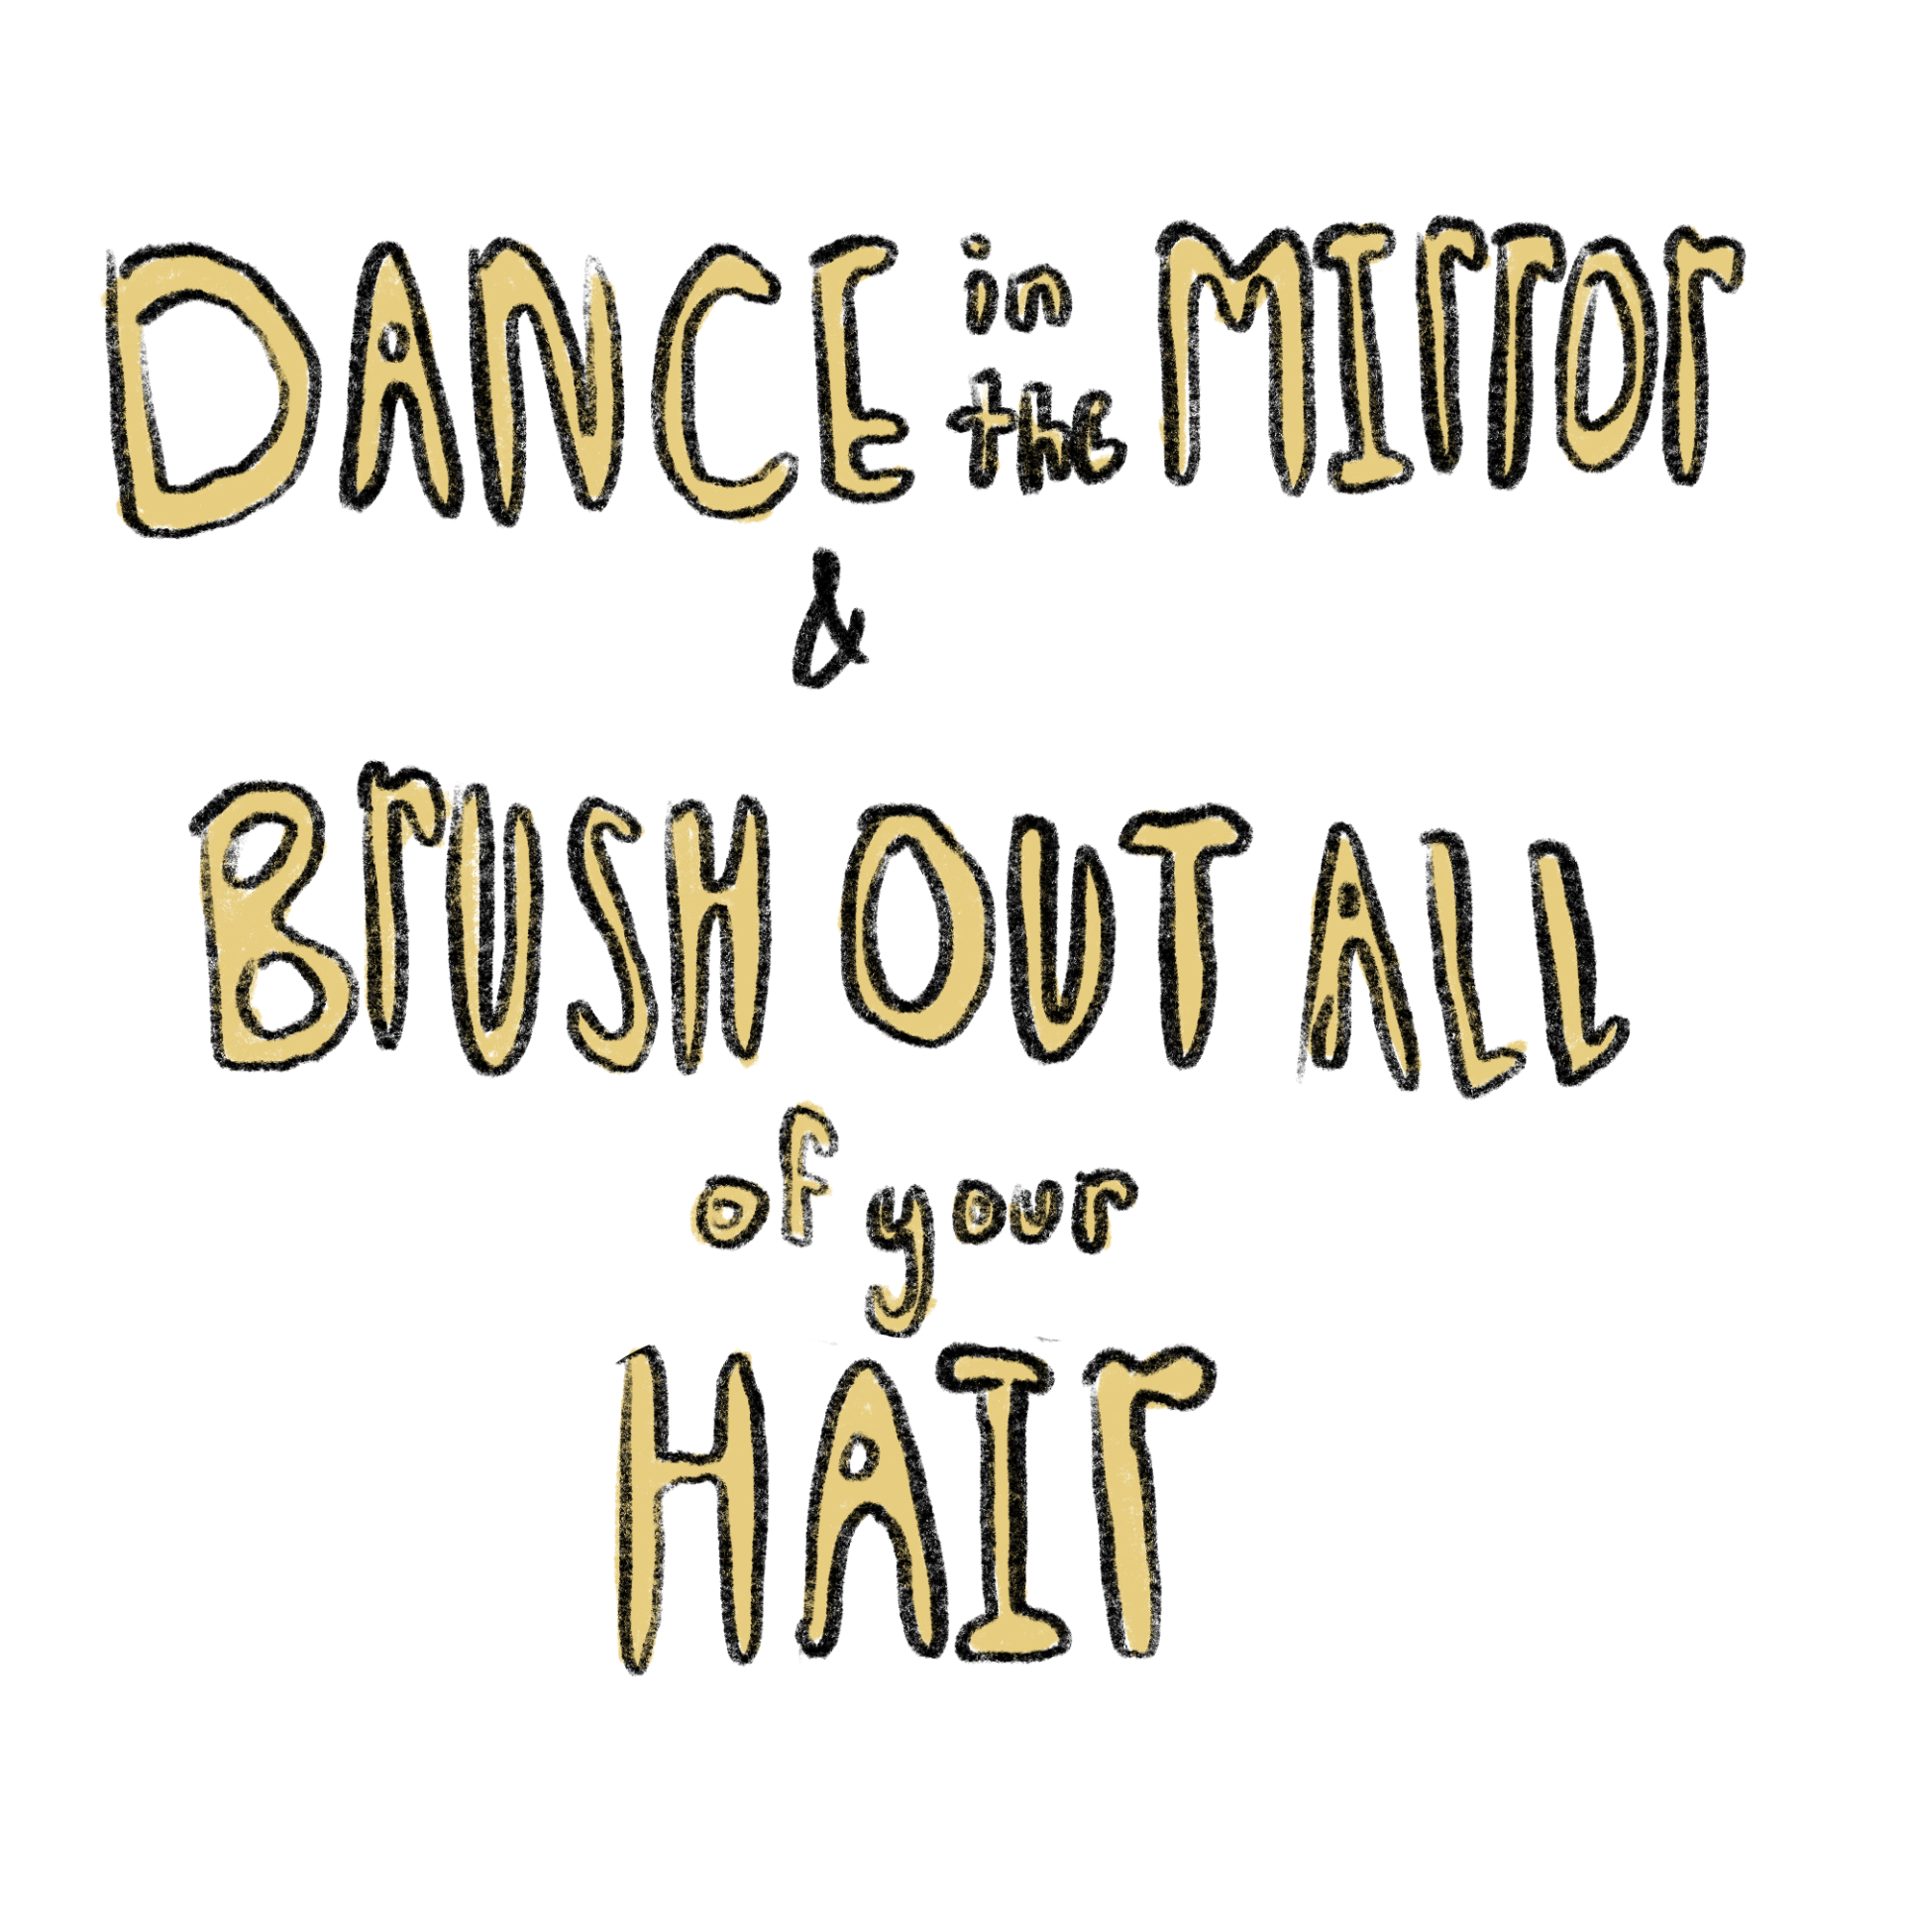 DANCE in the MIrror
&
BrUSH OUT ALL
of your
HAIr